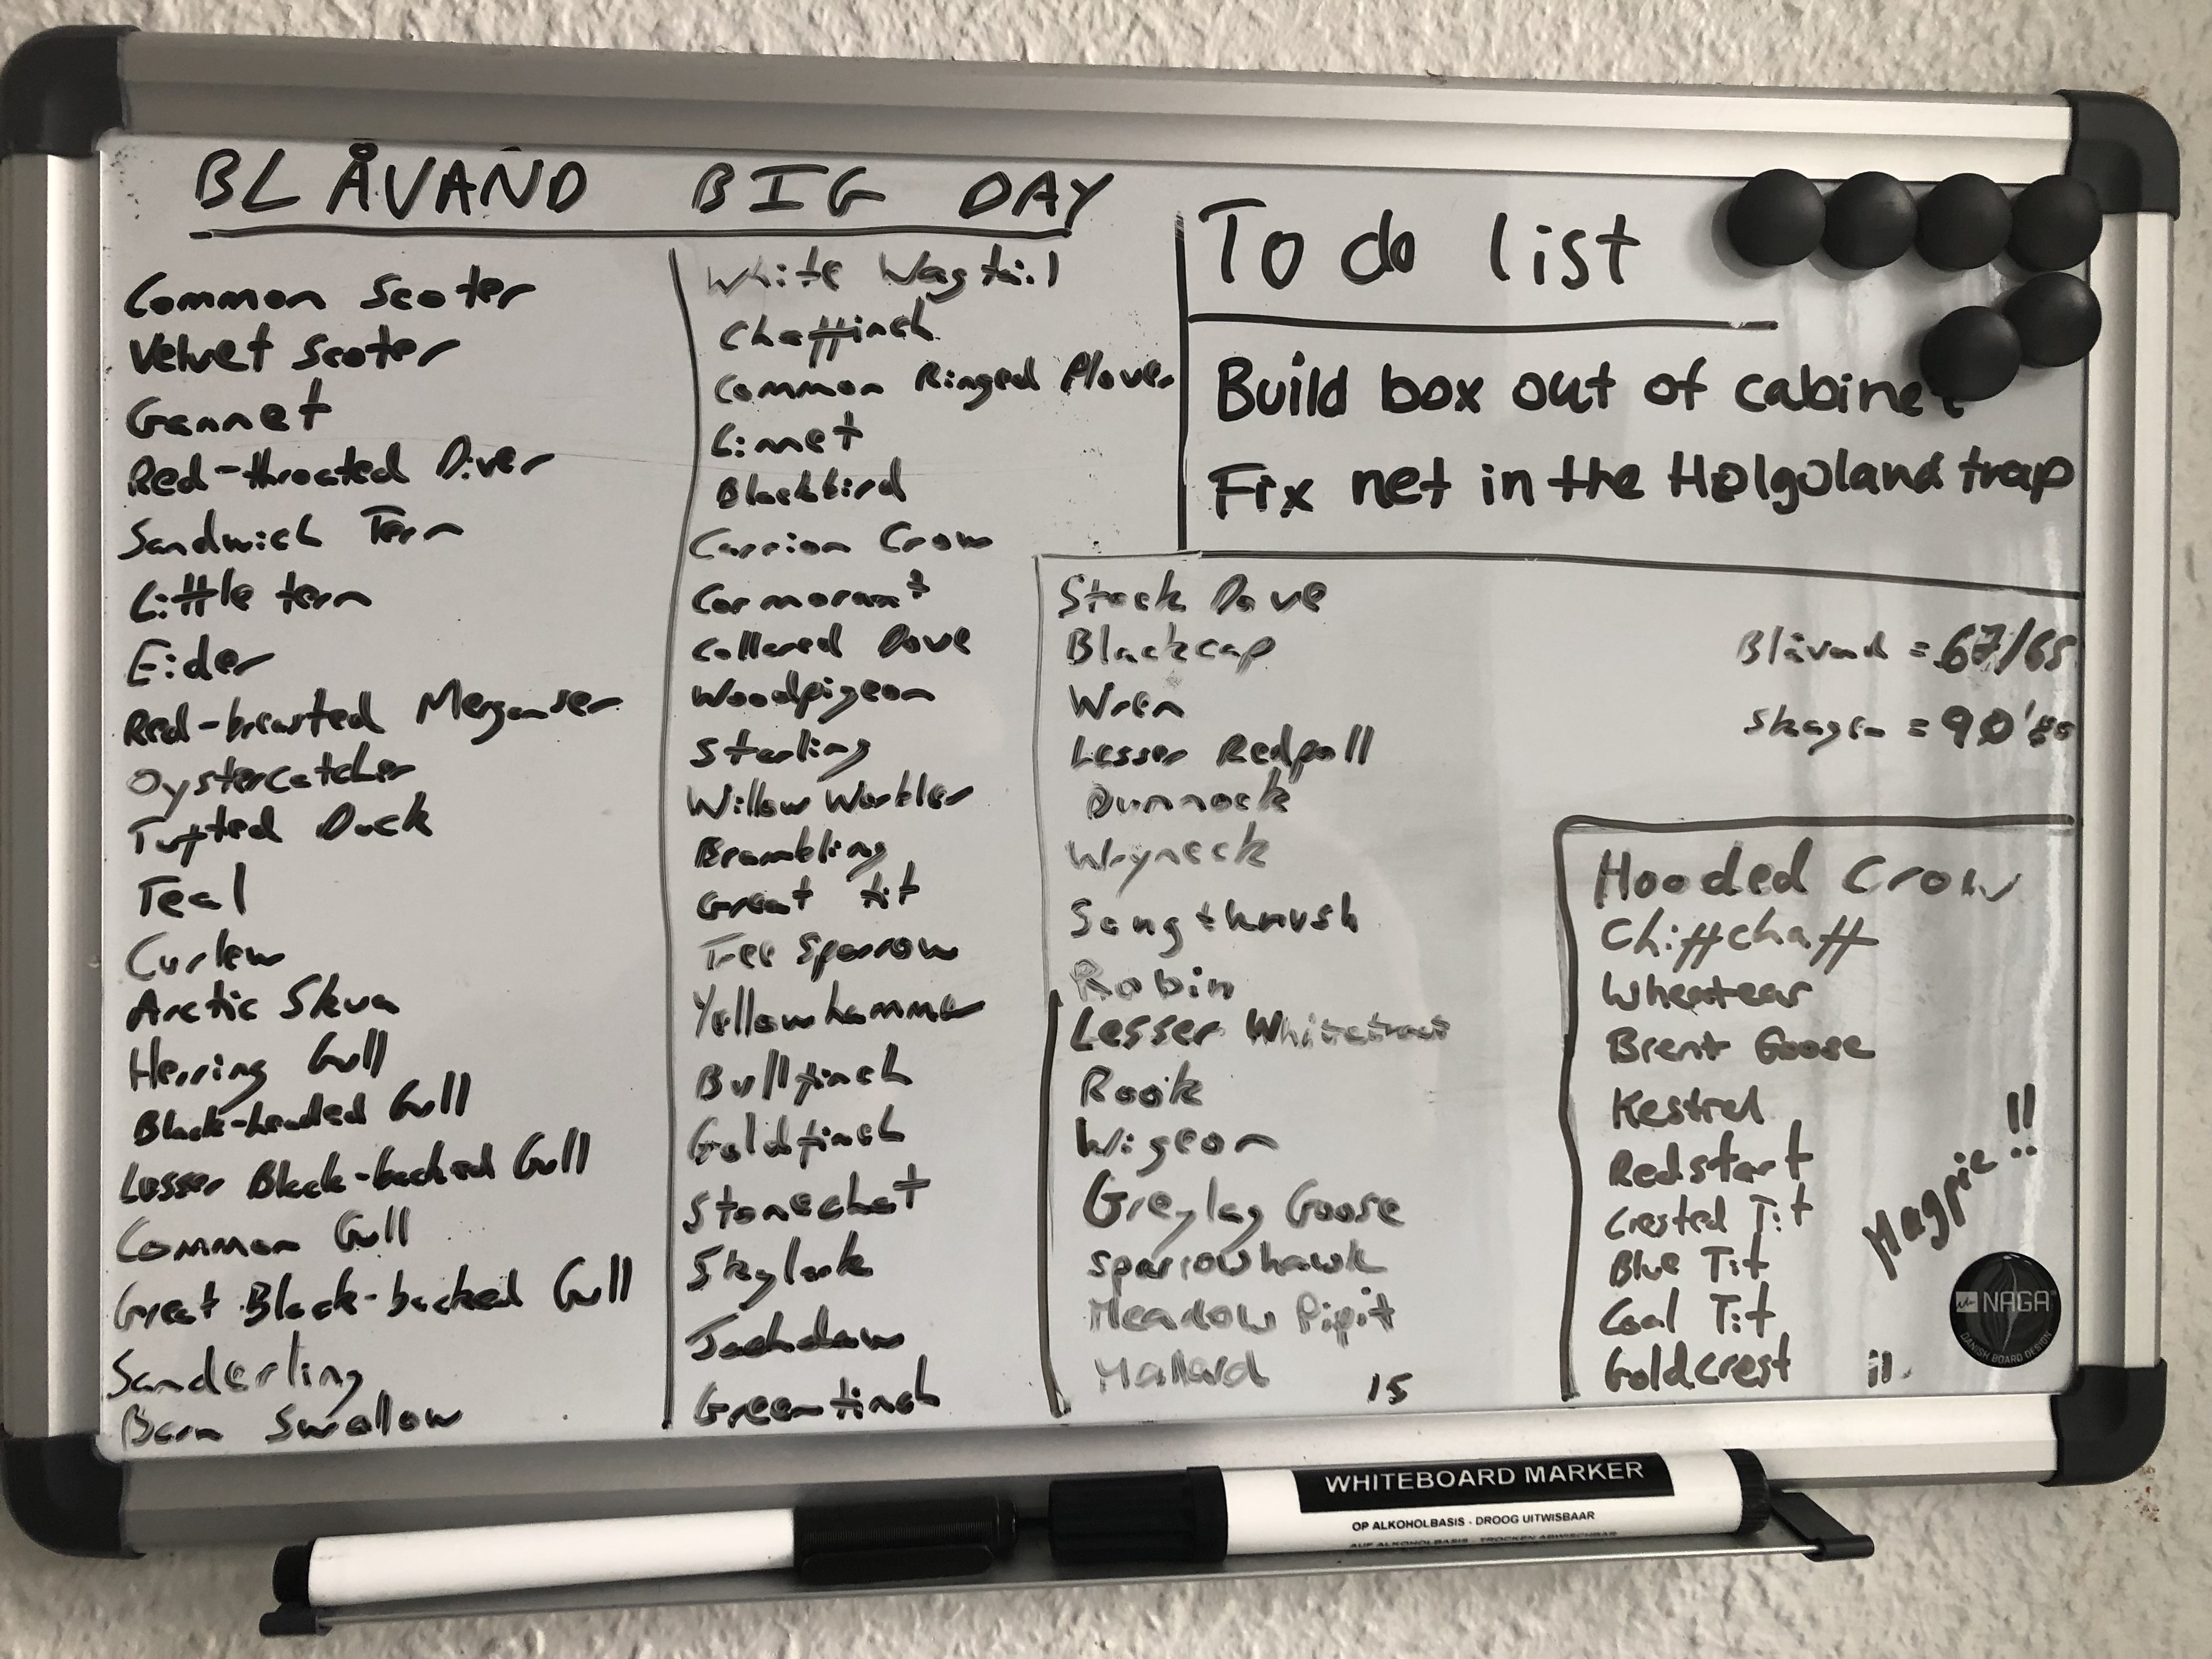 BLÅVAND BIG DAY
Common Scoter
Velvet Scoter
Gannet
Red-throated Diver
Sandwich Tern
Little tern
Eider
Red-breasted Merganser
Oystercatcher
Tufted Duck
Teal
Curlew
Arctic Skua
Herring Gull
Black-headed Gull
Lesser Black-backed Gull
Common Gull
Great Black-backed Gull
Sanderling
Barn Swallow
White Wagtail
Chaffinch
Common Ringed Plover
Linnet
Blackbird
Carrion Crow
Cormorant
Collared Dove
Woodpigeon
Starling
Willow Warbler
Brambling
Great tit
Tree Sparrow
Yellowhammer
Bullfinch
Goldfinch
Stonechat
Skylark
Jackdaw
Greenfinch
To do list
Build box out of cabinet
Fix net in the Holgoland trap
Stock Dove
Blackcap
Wren
Lesser Redpoll
Dunnock
Wryneck
Song thrush
Robin
Lesser Whitetroat
Rook
Wigeon
Greylag Goose
Sparrowhawk
Meadow Pipit
Mallard 15
Blåvand = 67/65
Skagen = 90
Hooded Crow
Chiffchaff
Wheatear
Brent Goose
Kestrel
Redstart
Crested Tit
Blue Tit
Coal Tit
Goldcrest 11.
Magpie!!
NAGA
DANISH BOARD DESIGN
WHITEBOARD MARKER
OP ALKOHOLBASIS - DROOG UITWISBAAR
AUF ALKOHOLBASIS - TROCKEN ABWISCHBAR